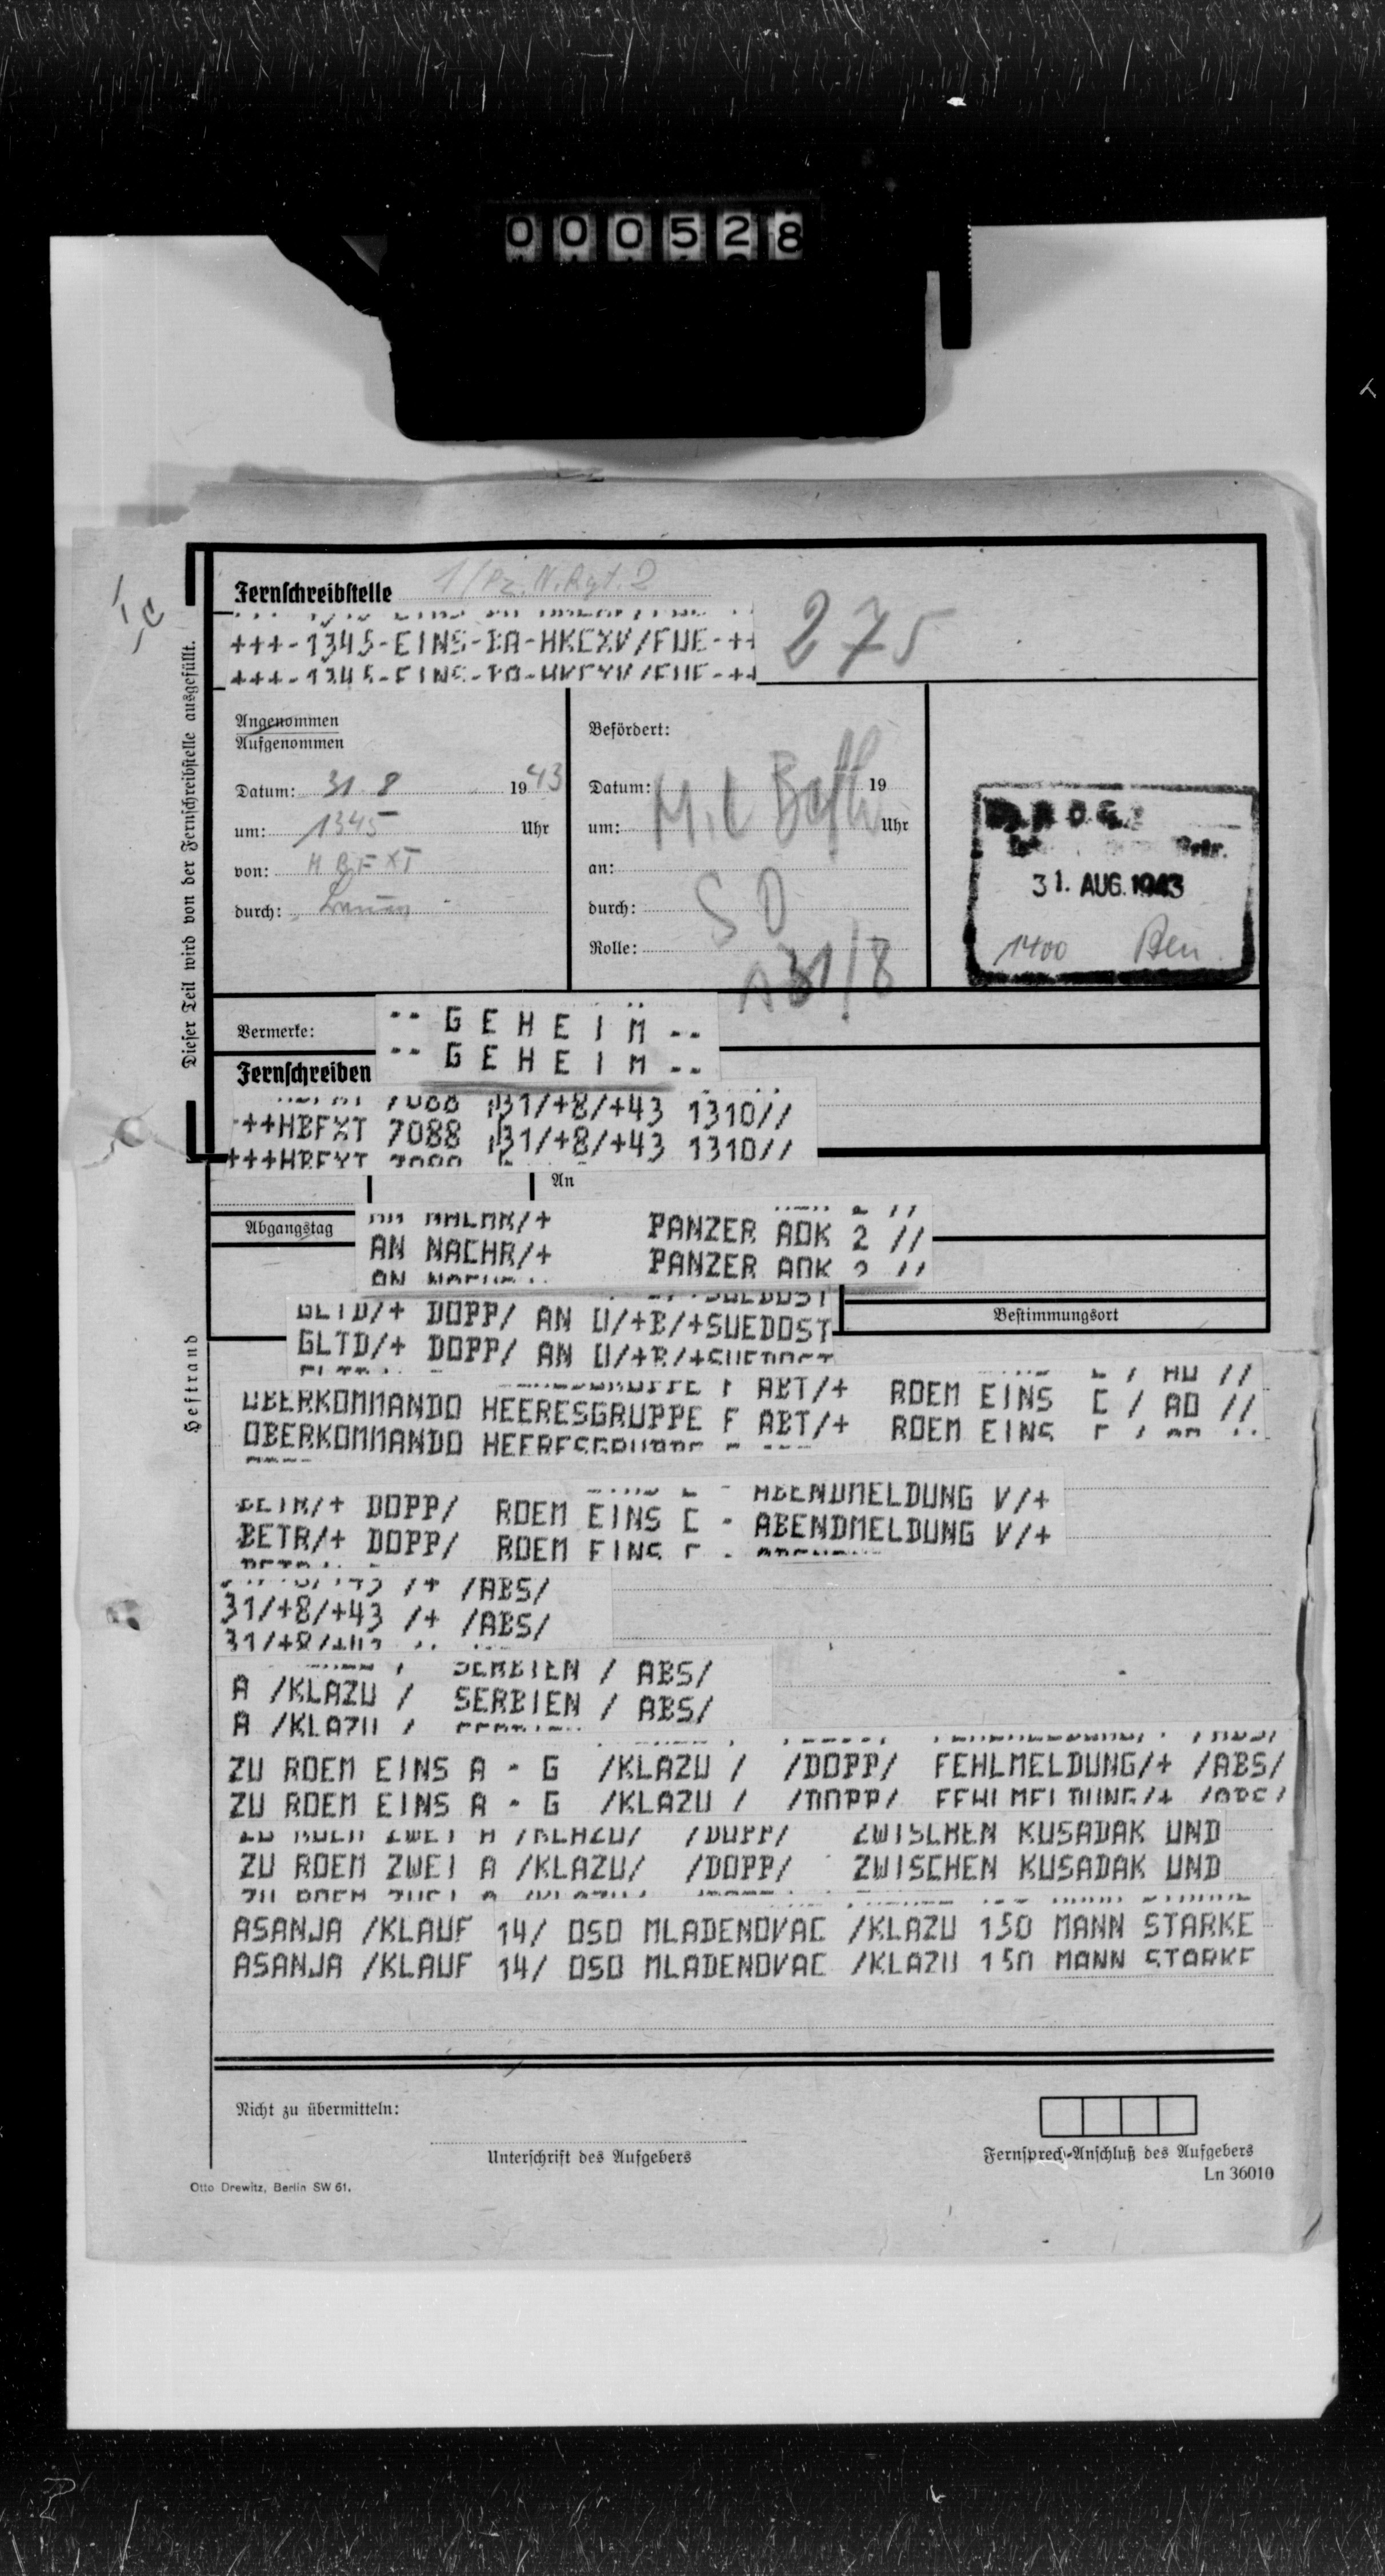 000528
Fernschreibstelle 1/Pz.N.Rgt.2
+++-1345-EINS-BA-HKCXV/FUE-++
275
Dieser Teil wird von der Fernschreibstelle ausgefüllt.
Angenommen
Aufgenommen
Datum: 31. 8 19 43
um: 1345 Uhr
von: HBFXT
durch:
Befördert:
Datum: 19
um: Uhr
an:
durch:
Rolle:
S D
31/8
31. AUG. 1943
1400
Vermerke:
-- G E H E I M --
-- G E H E I M --
Fernschreiben
+++HBFXT 7088 31/+8/+43 1310//
An
Abgangstag
AN NACHR/+ PANZER AOK 2 //
Bestimmungsort
GLTD/+ DOPP/ AN O/+B/+SUEDOST
Heftrand
OBERKOMMANDO HEERESGRUPPE F ABT/+ ROEM EINS C / AO //
BETR/+ DOPP/ ROEM EINS C - ABENDMELDUNG V/+
31/+8/+43 /+ /ABS/
A /KLAZU / SERBIEN / ABS/
ZU ROEM EINS A - G /KLAZU / /DOPP/ FEHLMELDUNG/+ /ABS/
ZU ROEM ZWEI A /KLAZU/ /DOPP/ ZWISCHEN KUSADAK UND
ASANJA /KLAUF 14/ OSO MLADENOVAC /KLAZU 150 MANN STARKE
Nicht zu übermitteln:
Unterschrift des Aufgebers
Fernsprech-Anschluß des Aufgebers
Ln 36010
Otto Drewitz, Berlin SW 61.